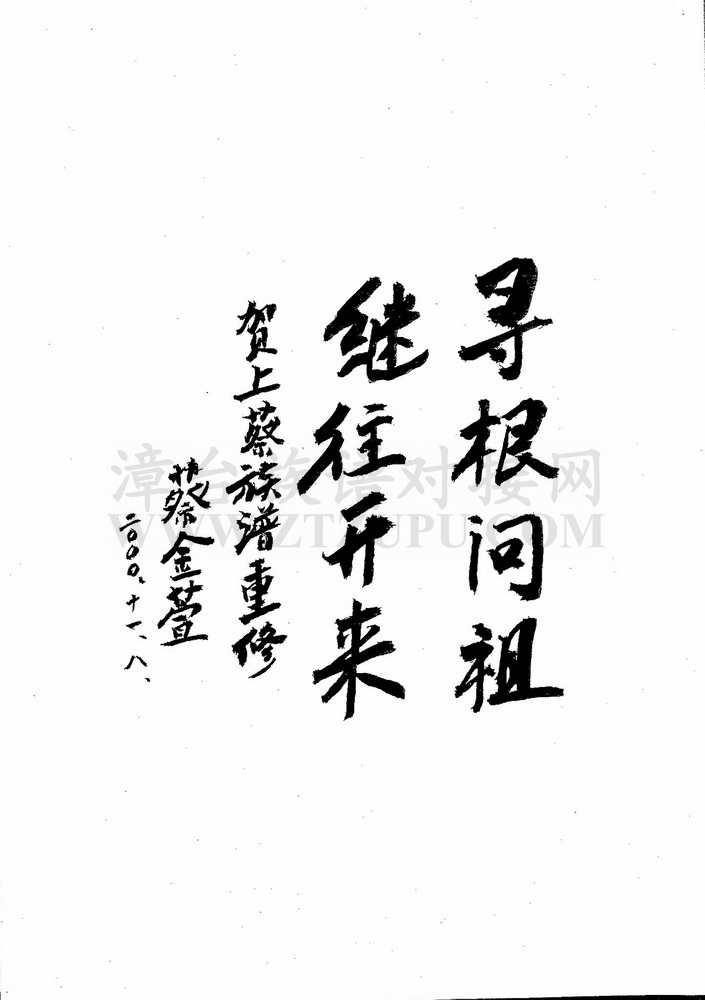 寻根问祖
继往开来
贺上蔡族谱重修
蔡金萱
二000.十一.八.
漳台族谱对接网
WWW.ZTZUPU.COM